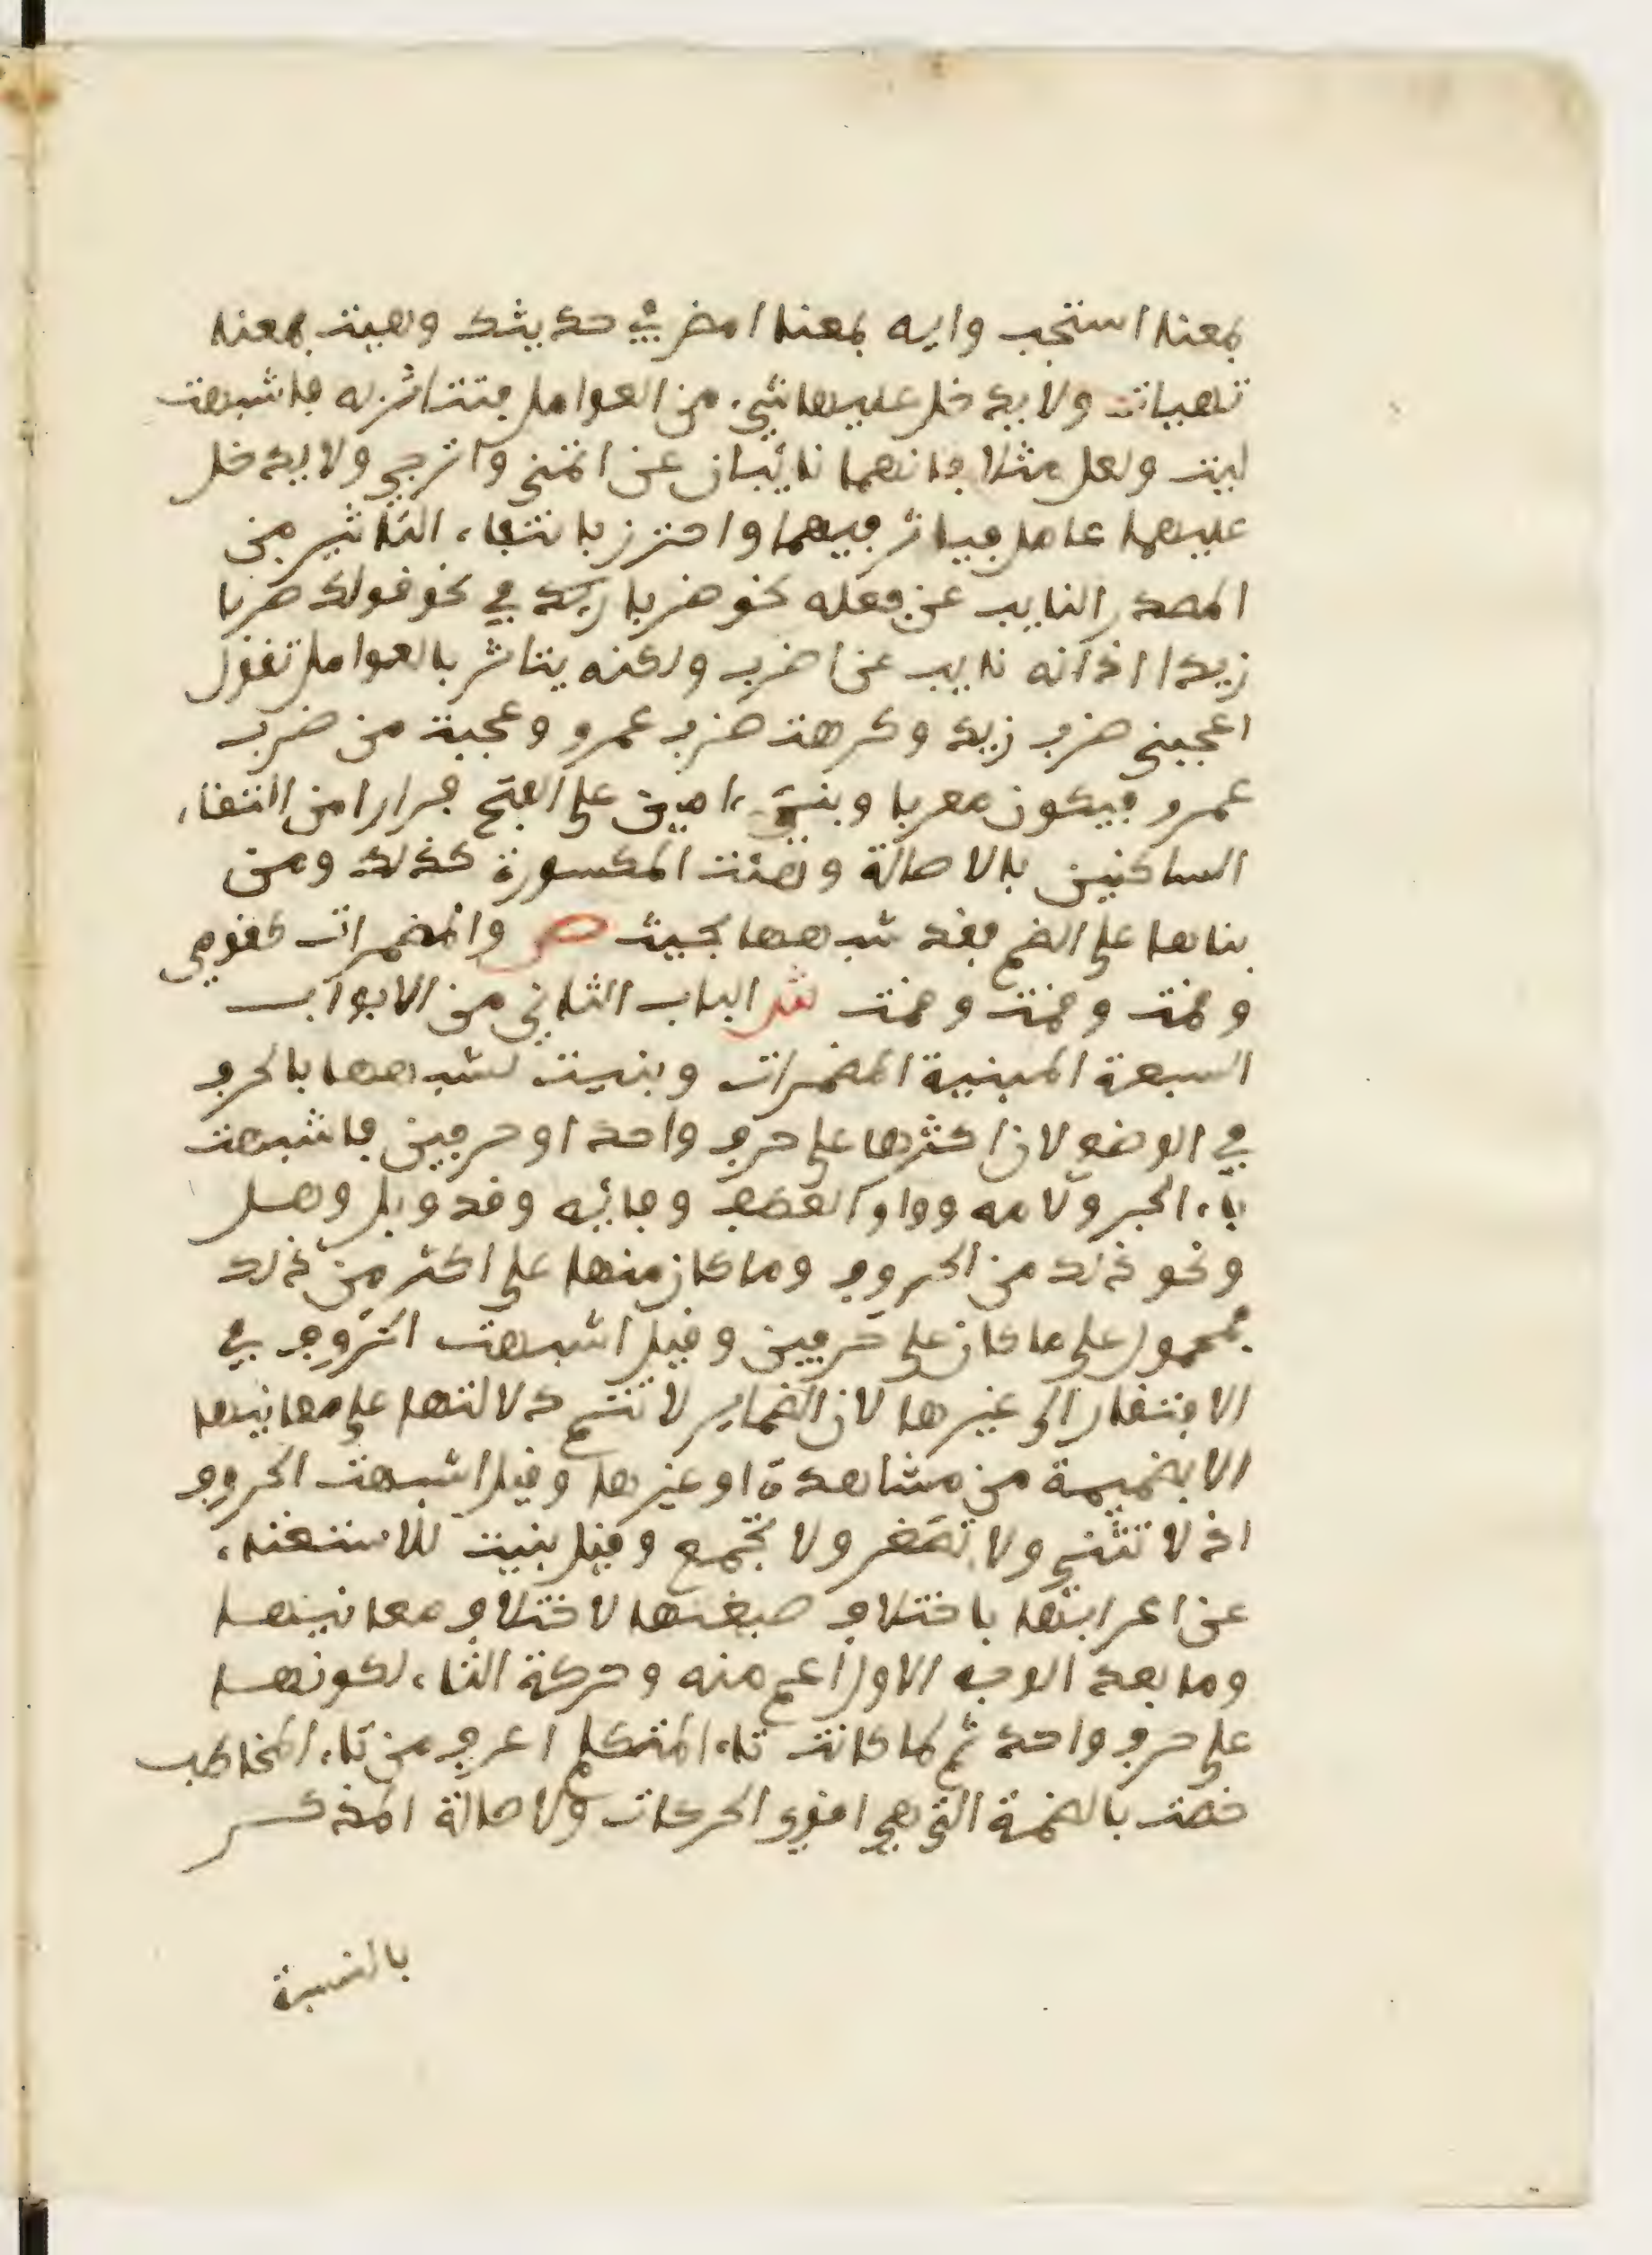 بمعنى استجب وايه بمعنى امض في حديثك وهيت بمعنى
تهيات ولا يدخل عليها شيء من العوامل فتتاثر به فاشبهت
ليت ولعل مثلا فانهما نائبان عن اتمنى واترجى ولا يدخل
عليهما عامل فيوثر فيهما واحترز بانتفاء التاثير من
المصدر النايب عن فعله نحو ضربا زيد في نحو قولك ضربا
زيدا اذ انه نايب عن اضرب ولكنه يتاثر بالعوامل تقول
اعجبني ضرب زيد وكرهت ضرب عمرو وعجبت من ضرب
عمرو فيكون معربا وبني ءامين على الفتح فرارا من التقاء
الساكنين بالاصالة وهئت المكسورة كذلك ومن
بناها على الضم فقد شبهها بحيث ص والمضمرات كقومي
وقمت وقمت وقمت ش الباب الثاني من الابواب
السبعة المبنية المضمرات وبنيت لشبهها بالحرف
في الوضع لان اكثرها على حرف واحد او حرفين فاشبهت
باء الجر ولامه وواو العطف وفائه وقد وبل وهل
ونحو ذلك من الحروف وما كان منها على اكثر من ذلك
فمحمول على ما كان على حرفين وقيل اشبهت الحروف في
الافتقار الى غيرها لان الضماير لا تتم دلالتها على معانيها
الا بضميمة من مشاهدة او غيرها وقيل اشبهت الحروف
اذ لا تثنى ولا تصغر ولا تجمع وقيل بنيت للاستغناء
عن اعرابها باختلاف صيغها لاختلاف معانيها
وما بعد الوجه الاول اعم منه وحركة التاء لكونها
على حرف واحد ثم لما كانت تاء المتكلم اعرف من تاء المخاطب
خصت بالضمة التي هي اقوى الحركات ولاصالة المذكر
بالنسبة